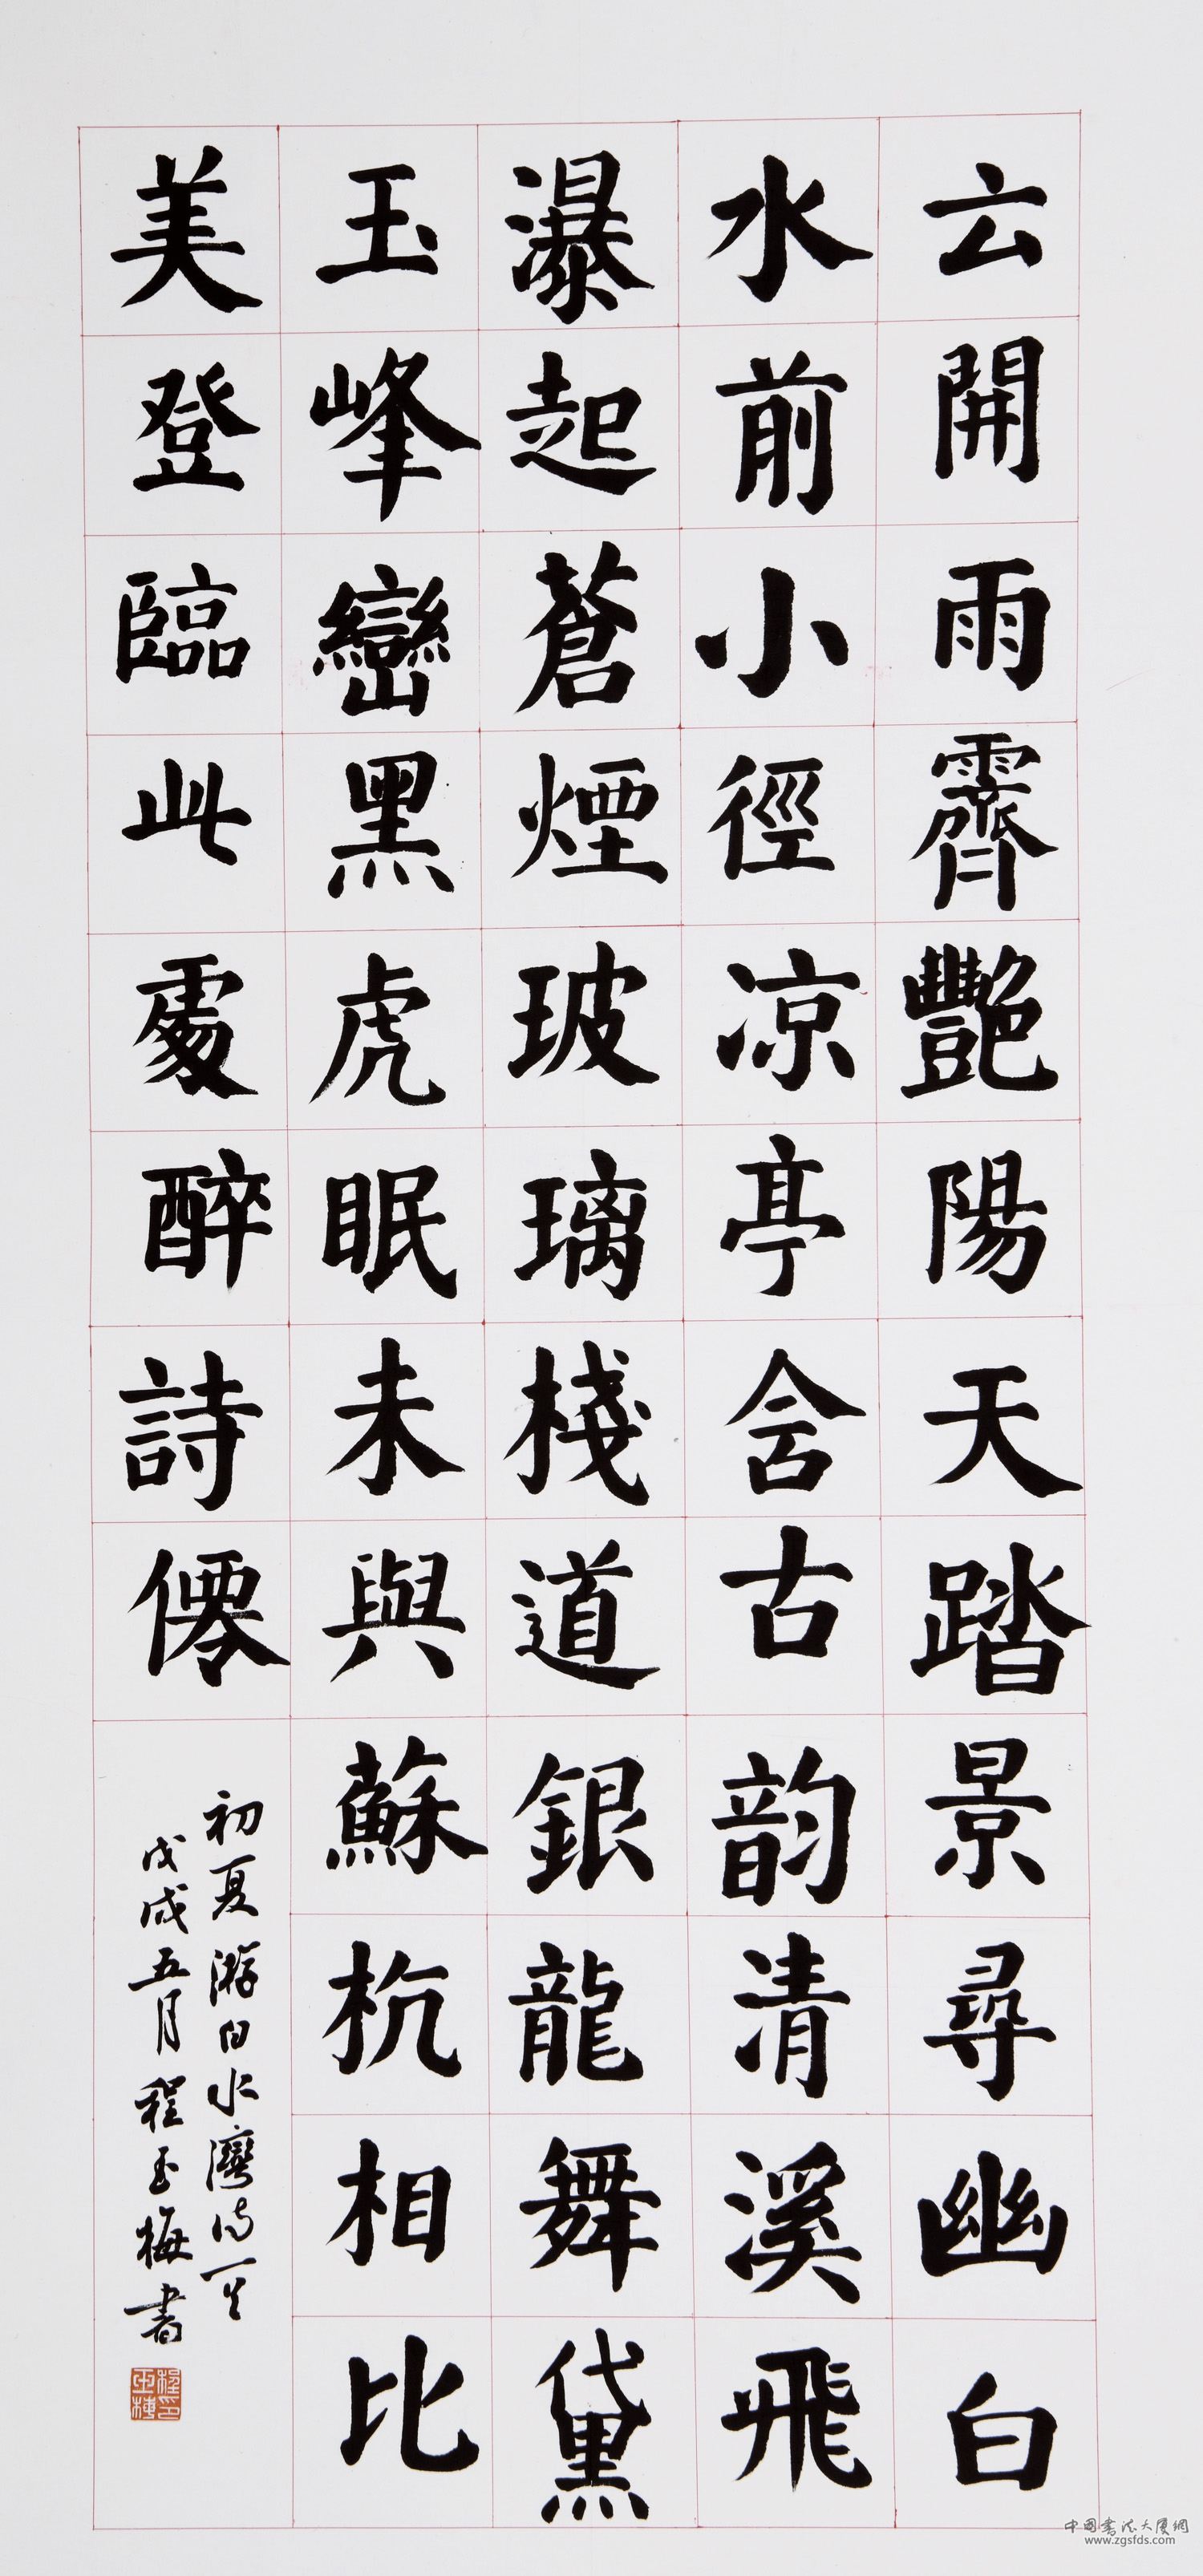 云開雨霽艷陽天踏景尋幽白
水前小徑凉亭舍古韵清溪飛
瀑起蒼煙玻璃棧道銀龍舞黛
玉峰巒黑虎眠未與蘇杭相比
美登臨此處醉詩僊
初夏游白水灣詩一首
戊戌五月程玉梅書
程玉梅印
中國書法大廈網
www.zgsfds.com